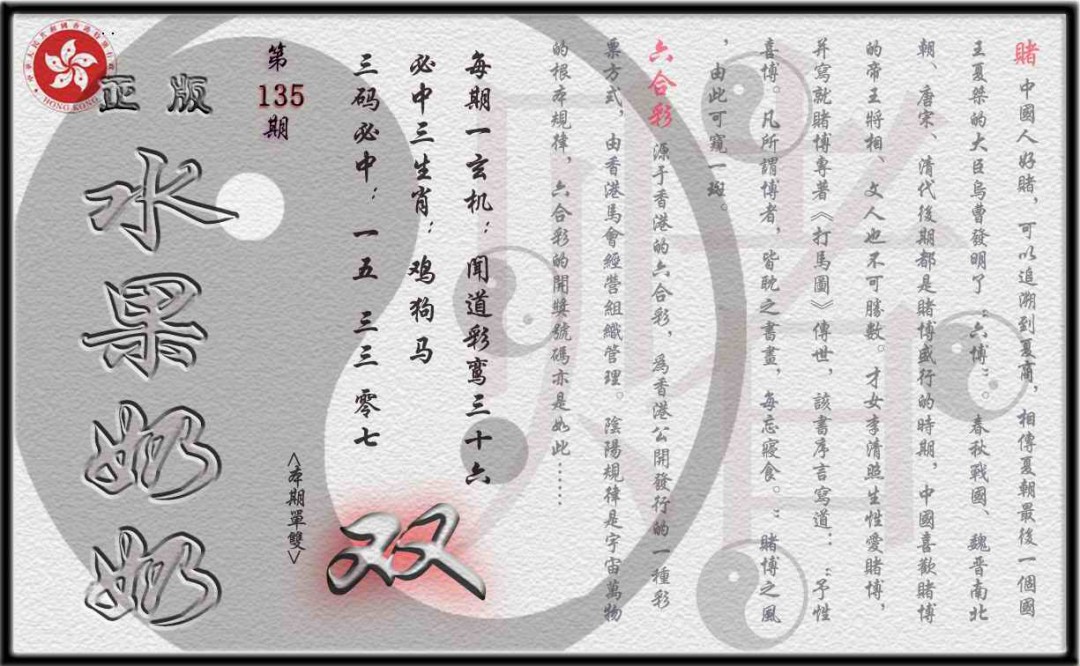 賭 中國人好賭，可以追溯到夏商，相傳夏朝最後一個國
王夏桀的大臣烏曹發明了“六博”。春秋戰國、魏晋南北
朝、唐宋、清代後期都是賭博盛行的時期，中國喜歡賭博
的帝王將相、文人也不可勝數。才女李清照生性愛賭博，
并寫就賭博專著《打馬圖》傳世，該書序言寫道：“予性
喜博。凡所謂博者，皆耽之晝晝，每忘寢食。”賭博之風
，由此可窺一斑。
六合彩 源于香港的六合彩，為香港公開發行的一種彩
票方式，由香港馬會經營組織管理。陰陽規律是宇宙萬物
的根本規律，六合彩的開獎號碼亦是如此……
每期一玄机：聞道彩鸾三十六
必中三生肖：鸡狗马
三码必中：一五 三三 零七
双
<本期單雙>
第
135
期
正版
水果奶奶
HONG KONG